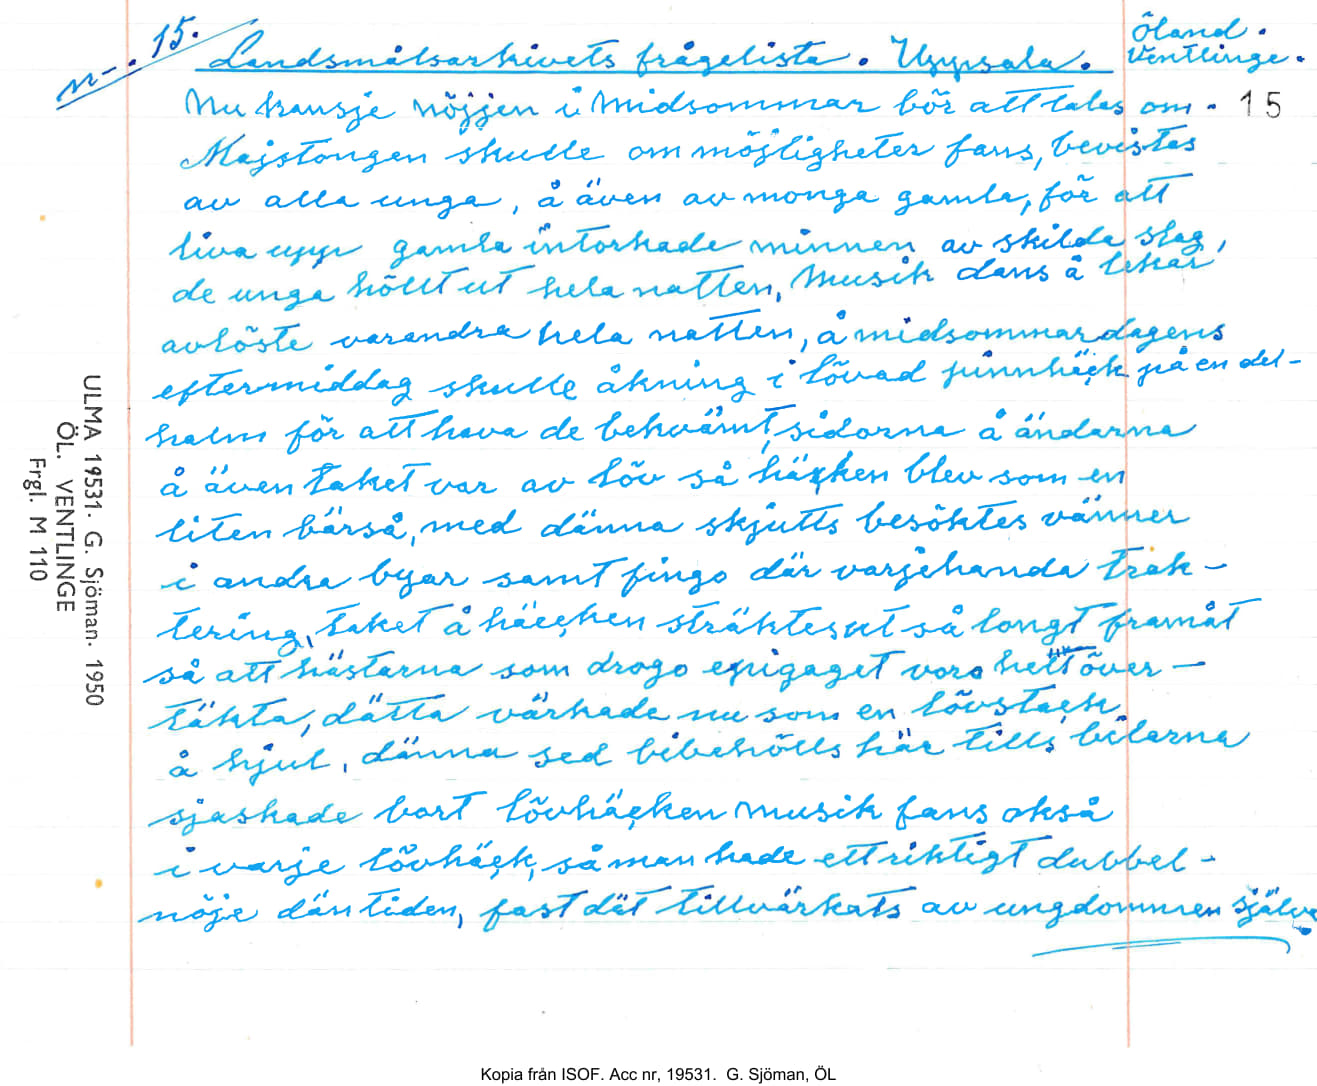 n-. 15. Landsmålsarkivets frågelista. Uppsala. Öland.
Ventlinge.
15
Nu kansje nöjjen i Midsommar bör att talas om.
Majstongen skulle om möjligheter fans, bevistas
av alla unga, å även av monga gamla, för att
liva upp gamla intorkade minnen av skilda slag,
de unga höllt ut hela natten, Musik dans å lekar
avlöste varandra hela natten, å midsommardagens
eftermiddag skulle åkning i lövad pinnhäck på en del-
halm för att hava de bekvämt, sidorna å ändarna
å även taket var av löv så häcken blev som en
liten bärså, med dänna skjutts besöktes vänner
i andra byar samt fingo där varjehanda trak-
tering, taket å häcken sträktes ut så longt framåt
så att hästarna som drogo epigaget voro hellt över-
täkta, dätta värkade nu som en lövstack
å hjul, dänna sed bibehölls här tills bilarna
sjaskade bort lövhäcken Musik fans okså
i varje lövhäck, så man hade ett riktigt dubbel-
nöje dän tiden, fast dät tillvärkats av ungdommen själva
ULMA 19531. G. Sjöman. 1950
ÖL. VENTLINGE
Frgl. M 110
Kopia från ISOF. Acc nr, 19531. G. Sjöman, ÖL